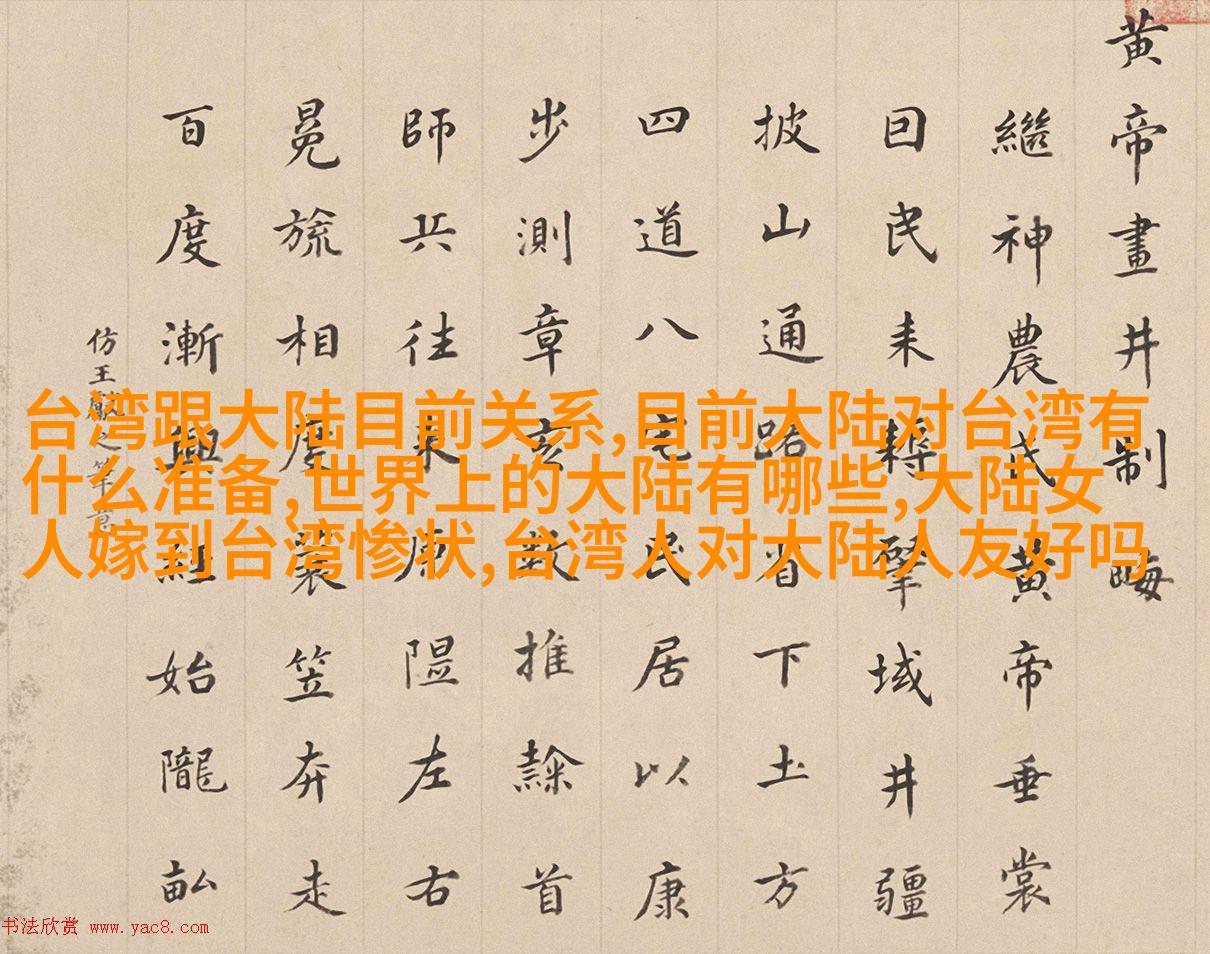 黄帝畫井制畮
繼神農氏黄帝垂裳
囙民耒耨肇域井疆
披山通路省下土方
四道八宅民居以康
步測章亥数推隸首
師兵往来原隰左右
冕旒相度蓑笠奔走
百度漸興經始隴畝
仿王獻之筆意
台湾跟大陆目前关系,目前大陆对台湾有
什么准备,世界上的大陆有哪些,大陆女
人嫁到台湾惨状,台湾人对大陆人友好吗
书法欣赏 www.yac8.com